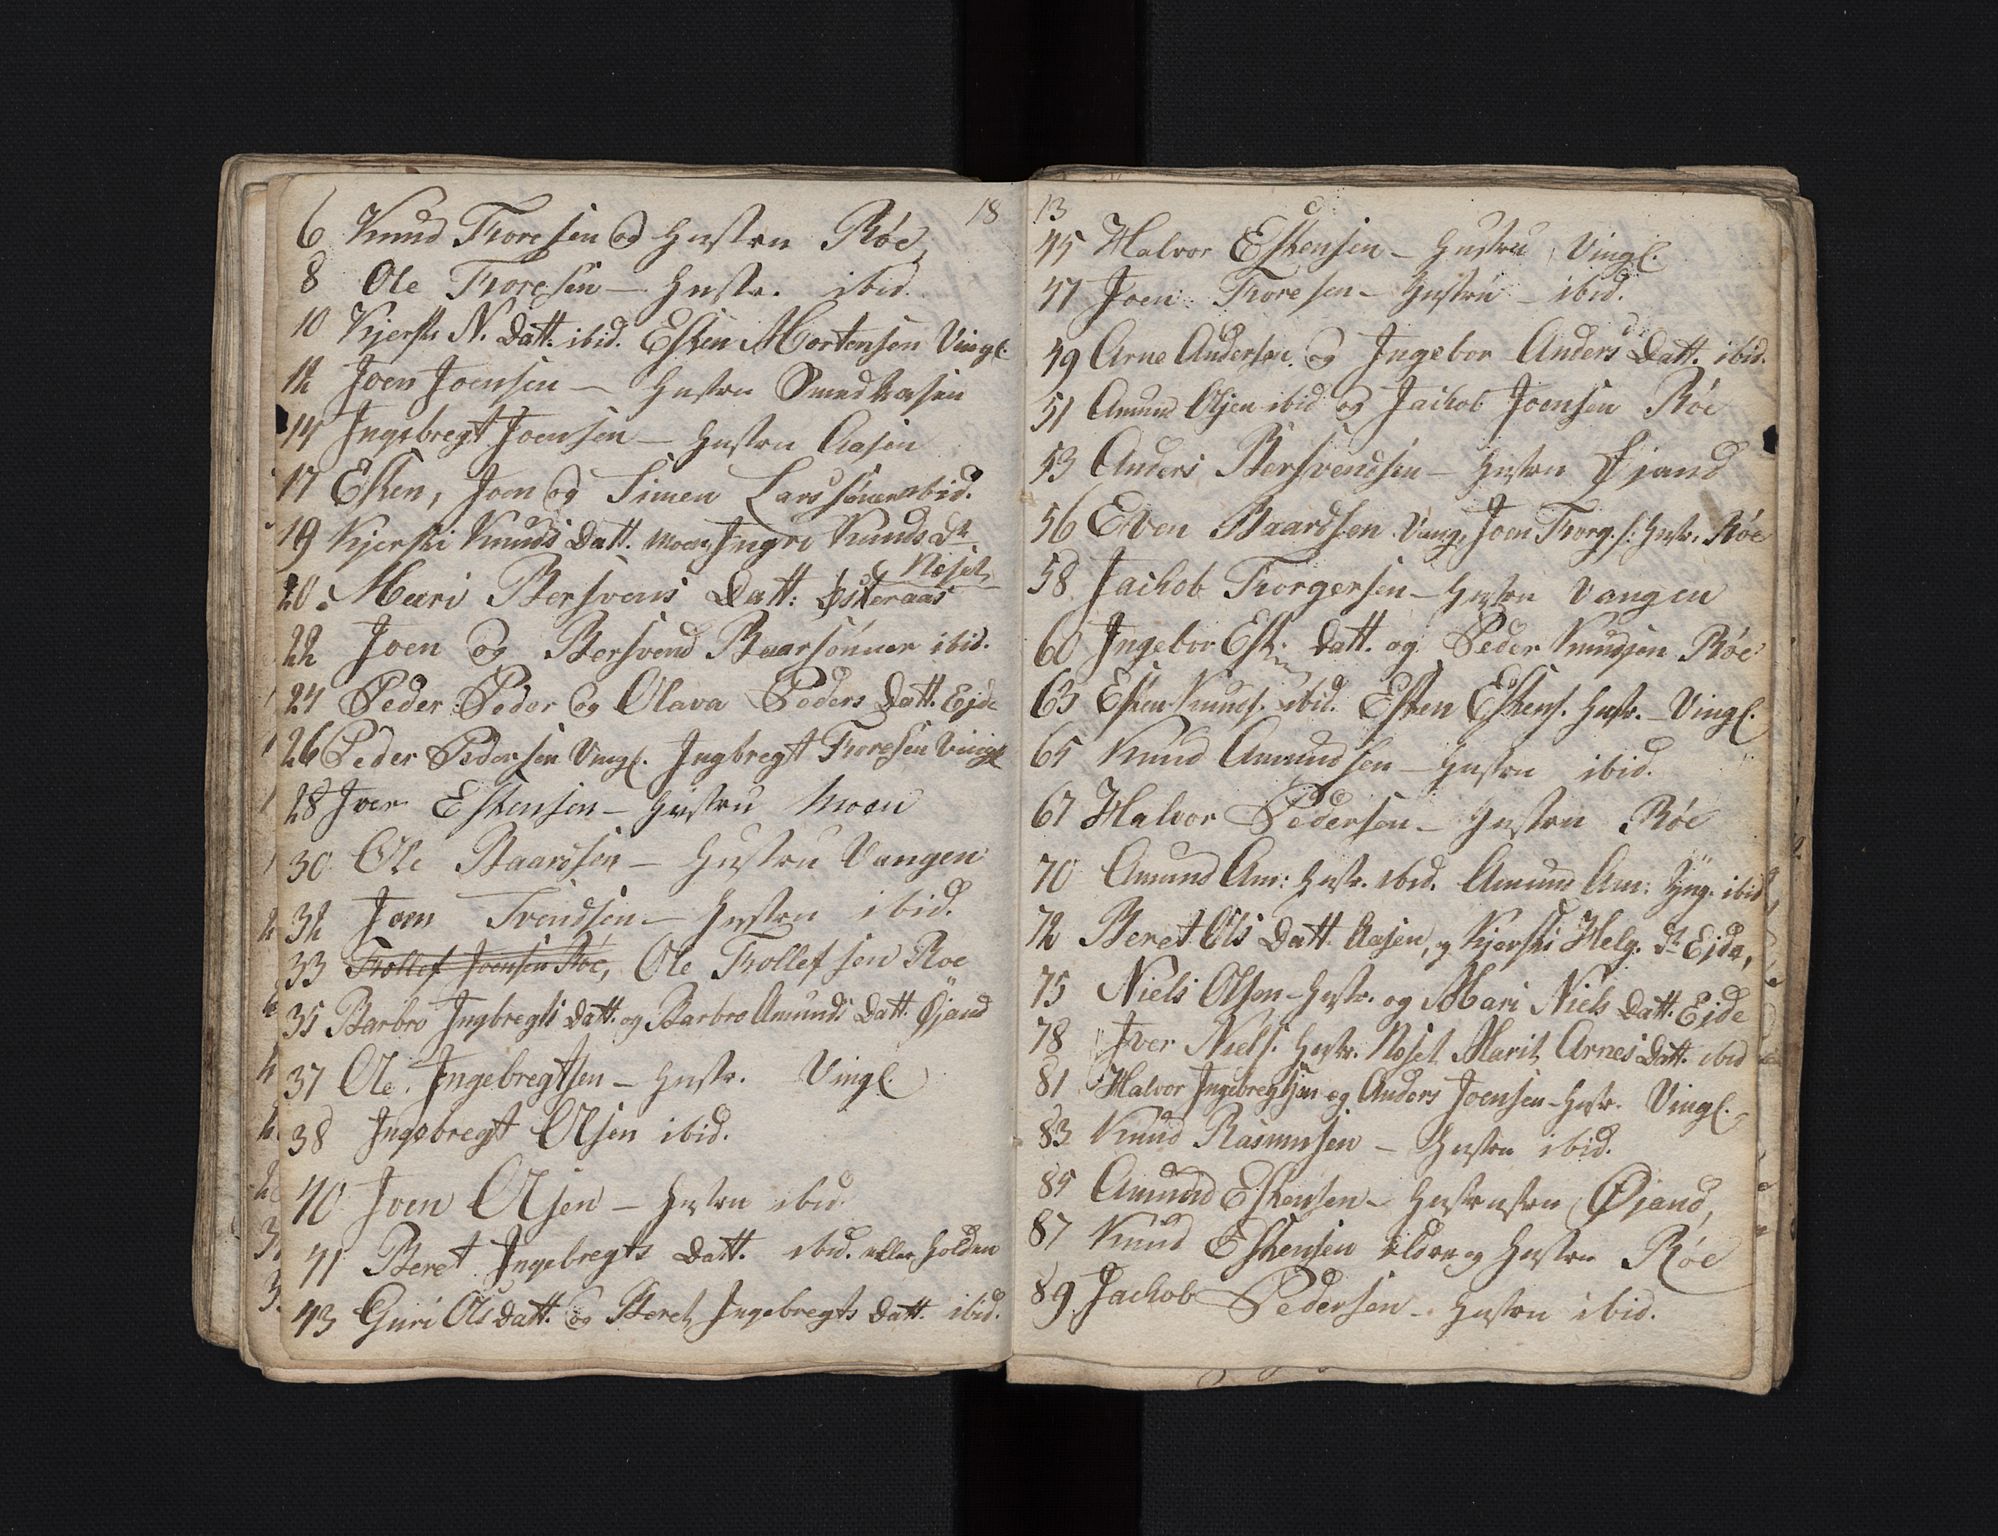 18
6 Knud Toresen og Hustru Røe
8 Ole Toresen – Hustr. ibid.
10 Kjersti N. Datt. ibid. Esten Mortensen Vingl.
12 Joen Joensen – Hustru Smedkaasen
14 Ingebregt Joensen – Hustru Aasen
17 Esten, Joen og Simen Larssønner ibid.
19 Kjersti Knuds Datt. Moen, Ingri Knuds Dr
Neset
20 Mari Bersvens Datt: Østeraas
22 Joen og Bersvend Baarsønner ibid.
24 Peder Peder og Olava Peders Datt. Eide
26 Peder Pedersen Vingl. Ingbregt Toresen Vingl
28 Iver Estensen – Hustru Moen
30 Ole Baardsen – Hustru Vangen
32 Joen Svendsen – Hustru ibid.
33 Tollef Joensen Røe, Ole Tollefsen Roe
35 Barbro Ingbregts Datt. og Barbro Amunds Datt. Øjand
37 Ole Ingebregtsen – Hustr. Vingl.
38 Ingebregt Olsen ibid.
40 Joen Olsen – Hustru ibid
41 Beret Ingebregts Datt. ibid. eller Holden
43 Guri Ols Datt. og Beret Ingebregts Datt. ibid.
13
45 Halvor Estensen – Hustru Vingl.
47 Joen Toresen – Hustru – ibid.
49 Arne Andersen og Ingebor Anders Datt. ibid.
51 Amund Olsen ibid og Jachob Joensen Røe
53 Anders Bersvendsen – Hustru Øjand
56 Even Baardsen Vang, Joen Torg.s: Hustr. Røe
58 Jachob Torgersen – Hustru Vangen
60 Ingebor Est. Datt. og Peder Knudsen Røe
63 Esten Knuds. ibid. Esten Estens. Hustr. – Vingl.
65 Knud Amundsen – Hustru ibid.
67 Halvor Pedersen – Hustru Røe
70 Amund Am: Hustr. ibid. Amund Am: Yng. ibid
72 Beret Ols Datt. Aasen, og Kjersti Helg. Dr Ejde,
75 Niels Olsen – Hustr. og Mari Niels Datt. Ejde
78 Iver Niels. Hustr. Neset Marit Arnes Datt. ibid
81 Halvor Ingebregtsen og Anders Joensen – Hustr. Vingl.
83 Knud Rasmusen – Hustru ibid.
85 Amund Estensen – Hustrustru Øjand,
87 Knud Estensen Eldre og Hustru Røe
89 Jachob Pedersen – Hustru ibid.